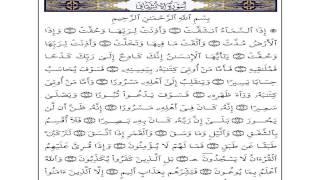 سورة الانشقاق
بِسْمِ اللَّهِ الرَّحْمَٰنِ الرَّحِيمِ
إِذَا السَّمَاءُ انشَقَّتْ ۝ وَأَذِنَتْ لِرَبِّهَا وَحُقَّتْ ۝ وَإِذَا
الْأَرْضُ مُدَّتْ ۝ وَأَلْقَتْ مَا فِيهَا وَتَخَلَّتْ ۝ وَأَذِنَتْ لِرَبِّهَا
وَحُقَّتْ ۝ يَا أَيُّهَا الْإِنسَانُ إِنَّكَ كَادِحٌ إِلَىٰ رَبِّكَ كَدْحًا
فَمُلَاقِيهِ ۝ فَأَمَّا مَنْ أُوتِيَ كِتَابَهُ بِيَمِينِهِ ۝ فَسَوْفَ يُحَاسَبُ
حِسَابًا يَسِيرًا ۝ وَيَنقَلِبُ إِلَىٰ أَهْلِهِ مَسْرُورًا ۝ وَأَمَّا مَنْ أُوتِيَ
كِتَابَهُ وَرَاءَ ظَهْرِهِ ۝ فَسَوْفَ يَدْعُو ثُبُورًا ۝ وَيَصْلَىٰ
سَعِيرًا ۝ إِنَّهُ كَانَ فِي أَهْلِهِ مَسْرُورًا ۝ إِنَّهُ ظَنَّ أَن لَّن
يَحُورَ ۝ بَلَىٰ إِنَّ رَبَّهُ كَانَ بِهِ بَصِيرًا ۝ فَلَا أُقْسِمُ
بِالشَّفَقِ ۝ وَاللَّيْلِ وَمَا وَسَقَ ۝ وَالْقَمَرِ إِذَا اتَّسَقَ ۝ لَتَرْكَبُنَّ
طَبَقًا عَن طَبَقٍ ۝ فَمَا لَهُمْ لَا يُؤْمِنُونَ ۝ وَإِذَا قُرِئَ عَلَيْهِمُ
الْقُرْآنُ لَا يَسْجُدُونَ ۝ بَلِ الَّذِينَ كَفَرُوا يُكَذِّبُونَ ۝ وَاللَّهُ
أَعْلَمُ بِمَا يُوعُونَ ۝ فَبَشِّرْهُم بِعَذَابٍ أَلِيمٍ ۝ إِلَّا الَّذِينَ آمَنُوا